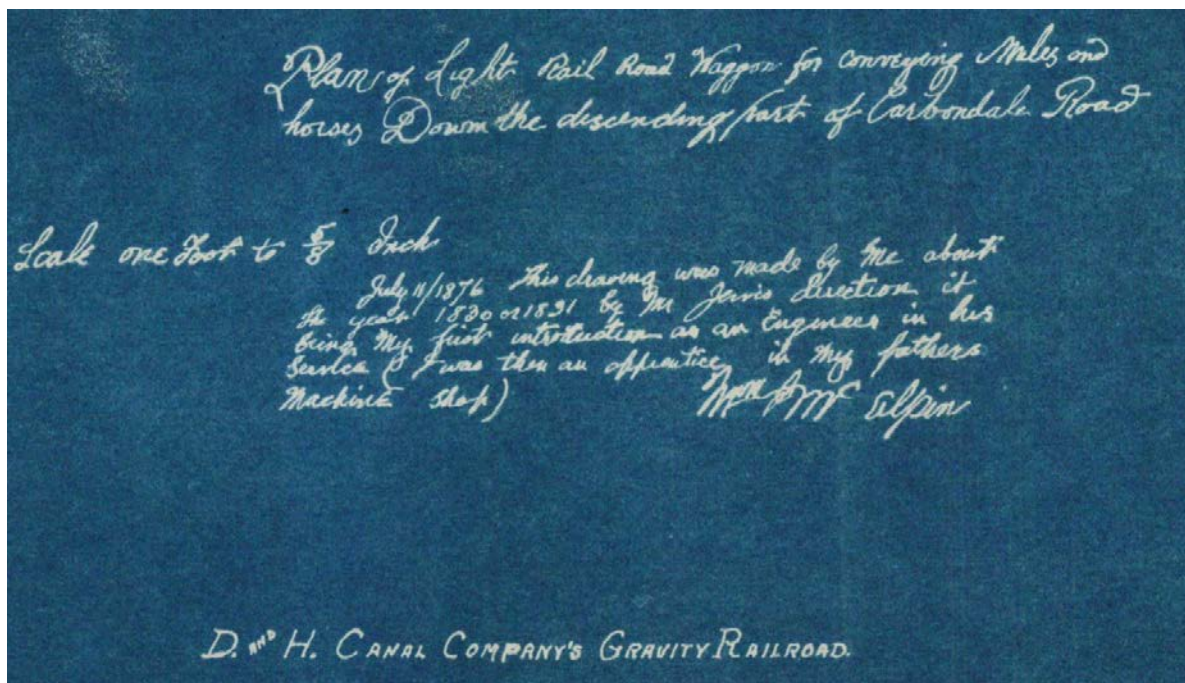 Plan of Light Rail Road Waggon for conveying Mules and
horses Down the discending part of Carbondale Road
Scale one Foot to 5/8 Inch
July 11/1876 This drawing was made by Me about
the year 1830 or 1831 by Mr Jervis direction it
being My first introduction as an Engineer in his
Service (I was then an apprentice in my fathers
Machine Shop)
Wm McElpin
D. AND H. CANAL COMPANY'S GRAVITY RAILROAD.